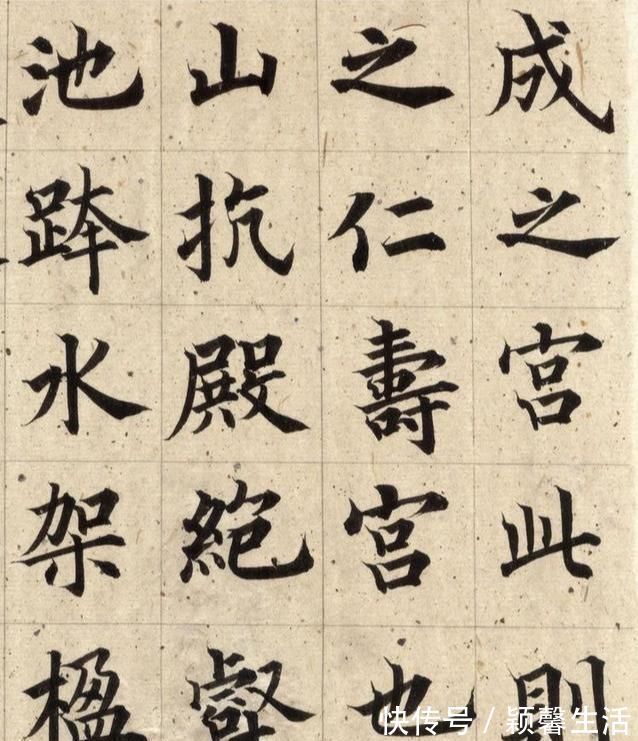 成之宮此則
之仁壽宮也
山抗殿絕壑
池跨水架楹
快传号 / 颖馨生活